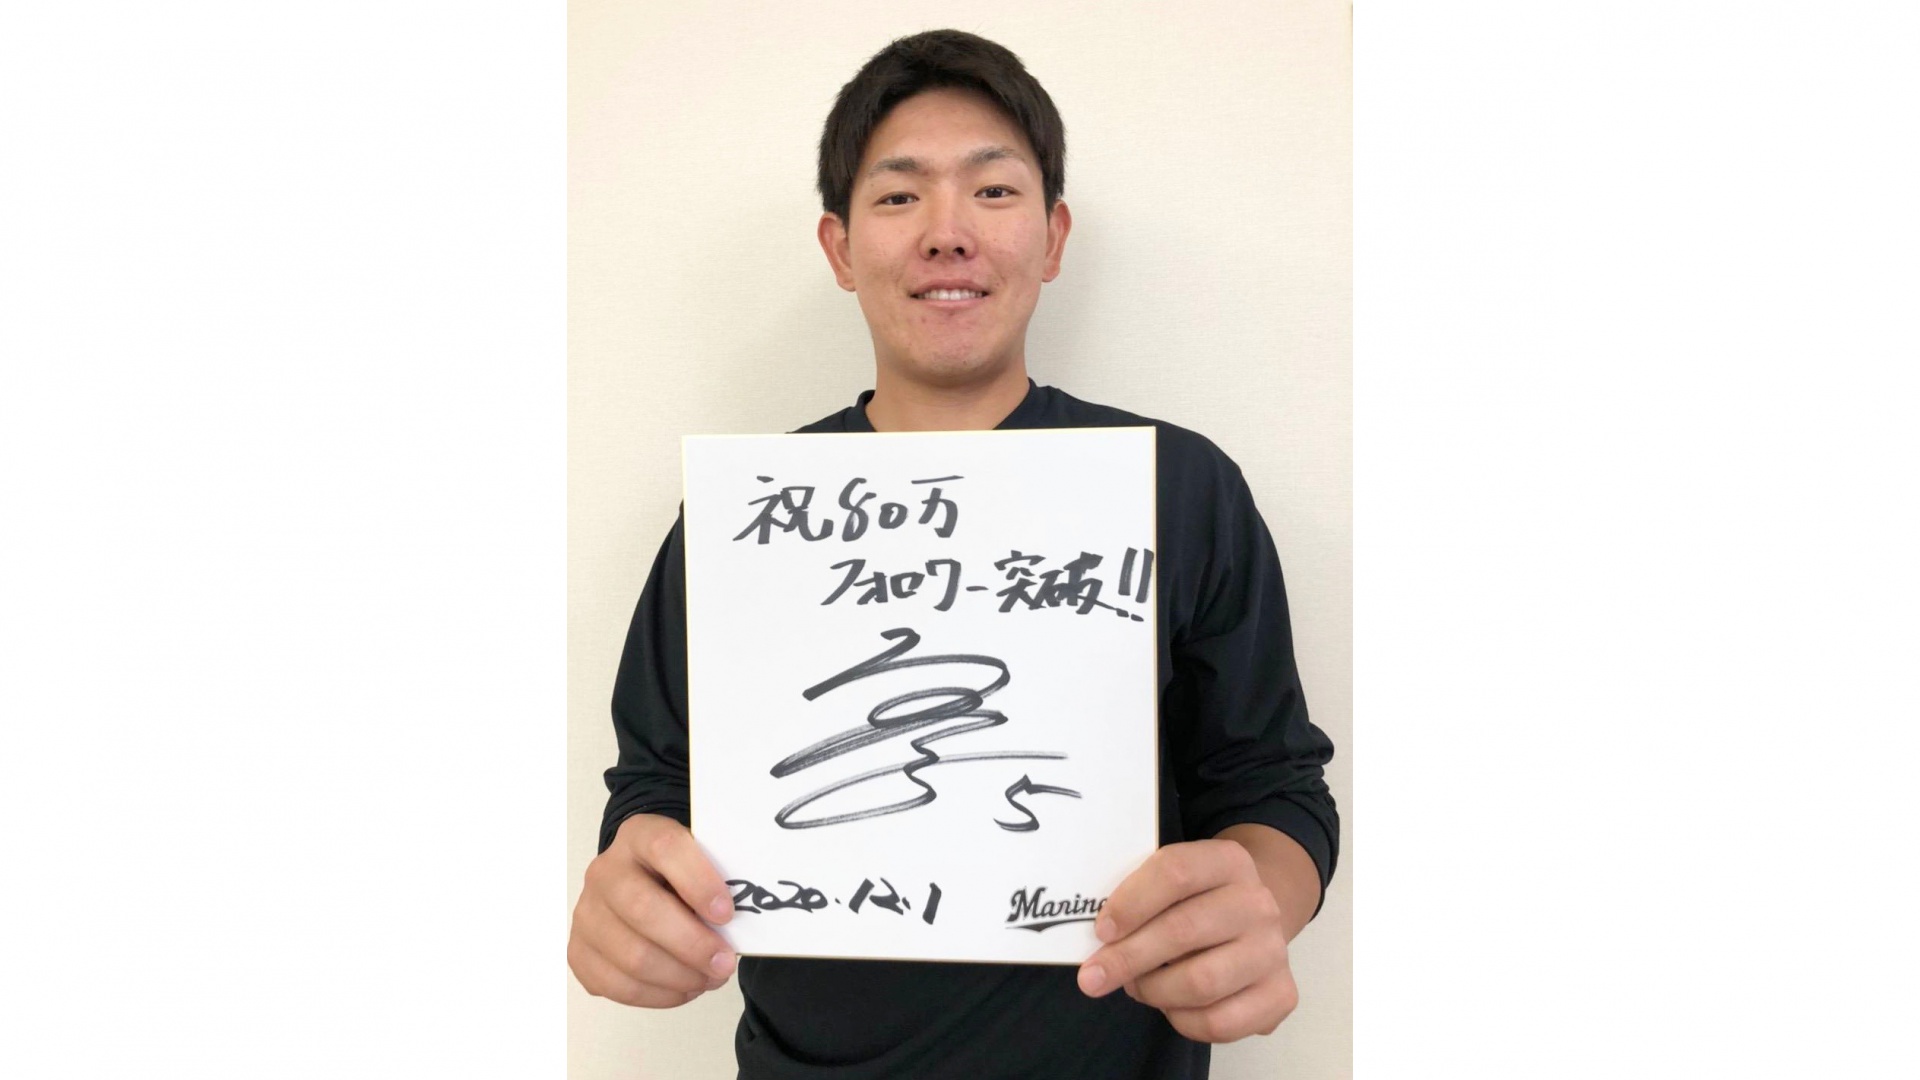 祝80万
フォロワー突破!!
5
2020.12.1
Marine